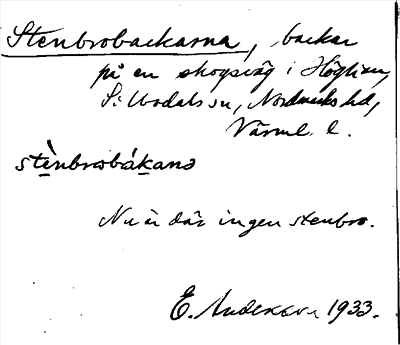 Stenbrobackarna, backar
på en skogsväg i Höglian,
S. Uvdals sn, Nordmarks hd,
Värml. l.
stènbrobákanə
Nu är där ingen stenbro.
E. Andersson 1933.